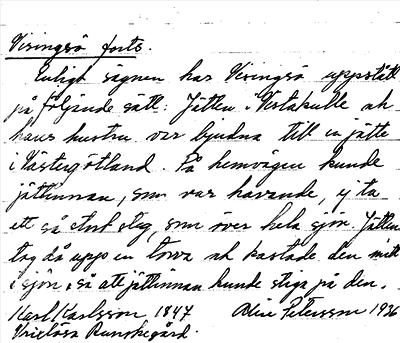 Visingsö forts.
Enligt sägnen har Visingsö uppstått
på följande sätt: Jätten i Vestakulle och
hans hustru var bjudna till en jätte
i Västergötland. På hemvägen kunde
jättinnan, som var havande, ej ta
ett så stort steg, som över hela sjön. Jätten
tog då upp en torva och kastade den mitt
i sjön, så att jättinnan kunde stiga på den.
Karl Karlsson 1847 Alice Petersson 1936